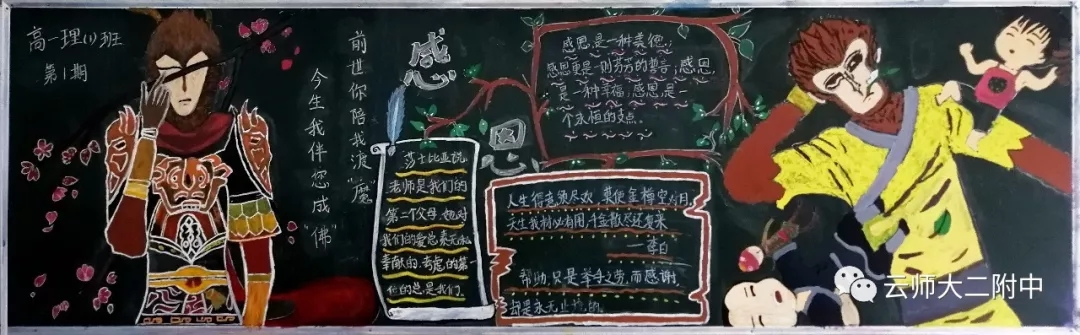 高一理(1)班
第1期
前世你陪我渡“魔”
今生我伴您成“佛”
感
恩
莎士比亚说
老师是我们的
第二个父母,她对
我们的爱总是无私
奉献的,考虑的第
一位的总是我们.
感恩,是一种美德,
感恩是一则芬芳的誓言;感恩,
是一种幸福;感恩,是一
个永恒的支点.
人生得意须尽欢,莫使金樽空对月.
天生我材必有用,千金散尽还复来
——李白
帮助,只是举手之劳,而感谢,
却是永无止境的.
云师大二附中